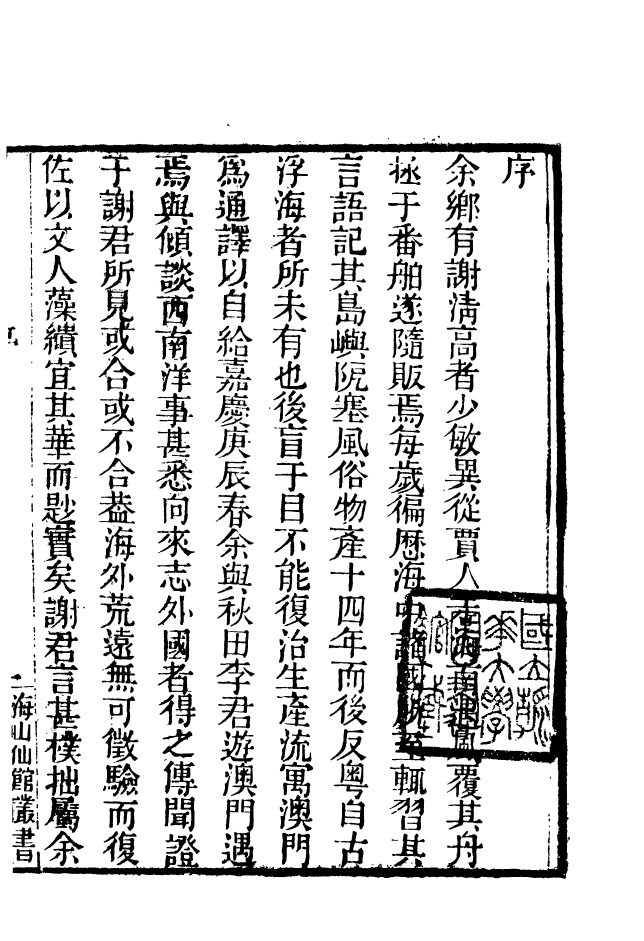 序
余鄉有謝清高者少敏異從賈人走海南遇風覆其舟
拯于番舶遂隨販焉每歲徧歷海中諸國所至輒習其
言語記其島嶼阨塞風俗物產十四年而後反粵自古
浮海者所未有也後盲于目不能復治生產流寓澳門
為通譯以自給嘉慶庚辰春余與秋田李君遊澳門遇
焉與傾談西南洋事甚悉向來志外國者得之傳聞證
于謝君所見或合或不合蓋海外荒遠無可徵驗而復
佐以文人藻繢宜其華而尟實矣謝君言甚樸拙屬余
海山仙館叢書
國立
大學